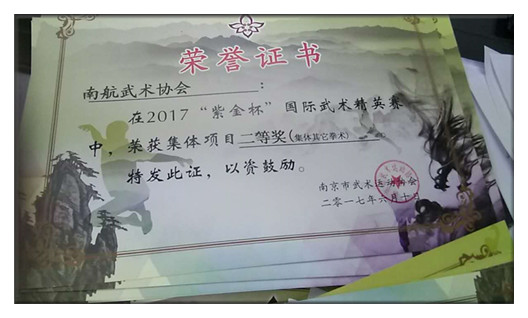 荣誉证书
南航武术协会:
在2017“紫金杯”国际武术精英赛
中，荣获集体项目二等奖(集体其它拳术)
特发此证，以资鼓励。
南京市武术运动协会
二零一七年六月十日